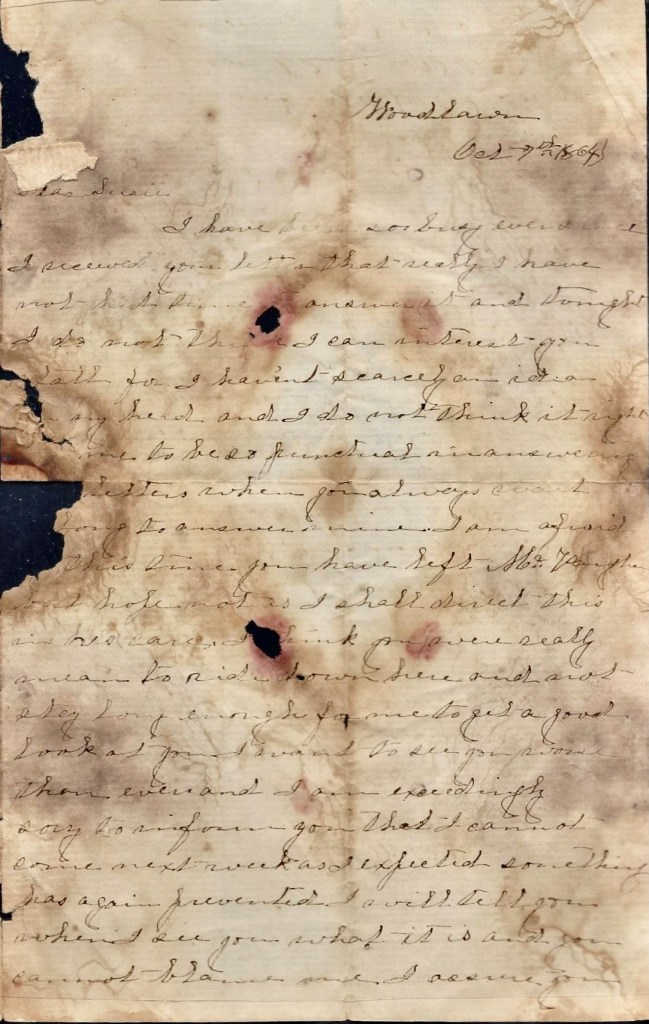 Woodlawn
Oct 9th 1864
Dear Susie
I have so busy ever
I received your letter that really I have
not had time answer it and tonight
I do not I can interest you
for I havent scarcely an idea
my head and I do not think it right
me to be so punctual in answering
letters when you always wait
long to answer mine. I am afraid
this time you have left Mr.
but hope not as I shall direct this
in his care. I think you were really
mean to ride down here and not
stay long enough for me to get a good
look at you I want to see you worse
than ever and I am exceedingly
sory to inform you that I cannot
come next week as I expected something
has again prevented I will tell you
when I see you what it is and you
cannot blame me I assure you